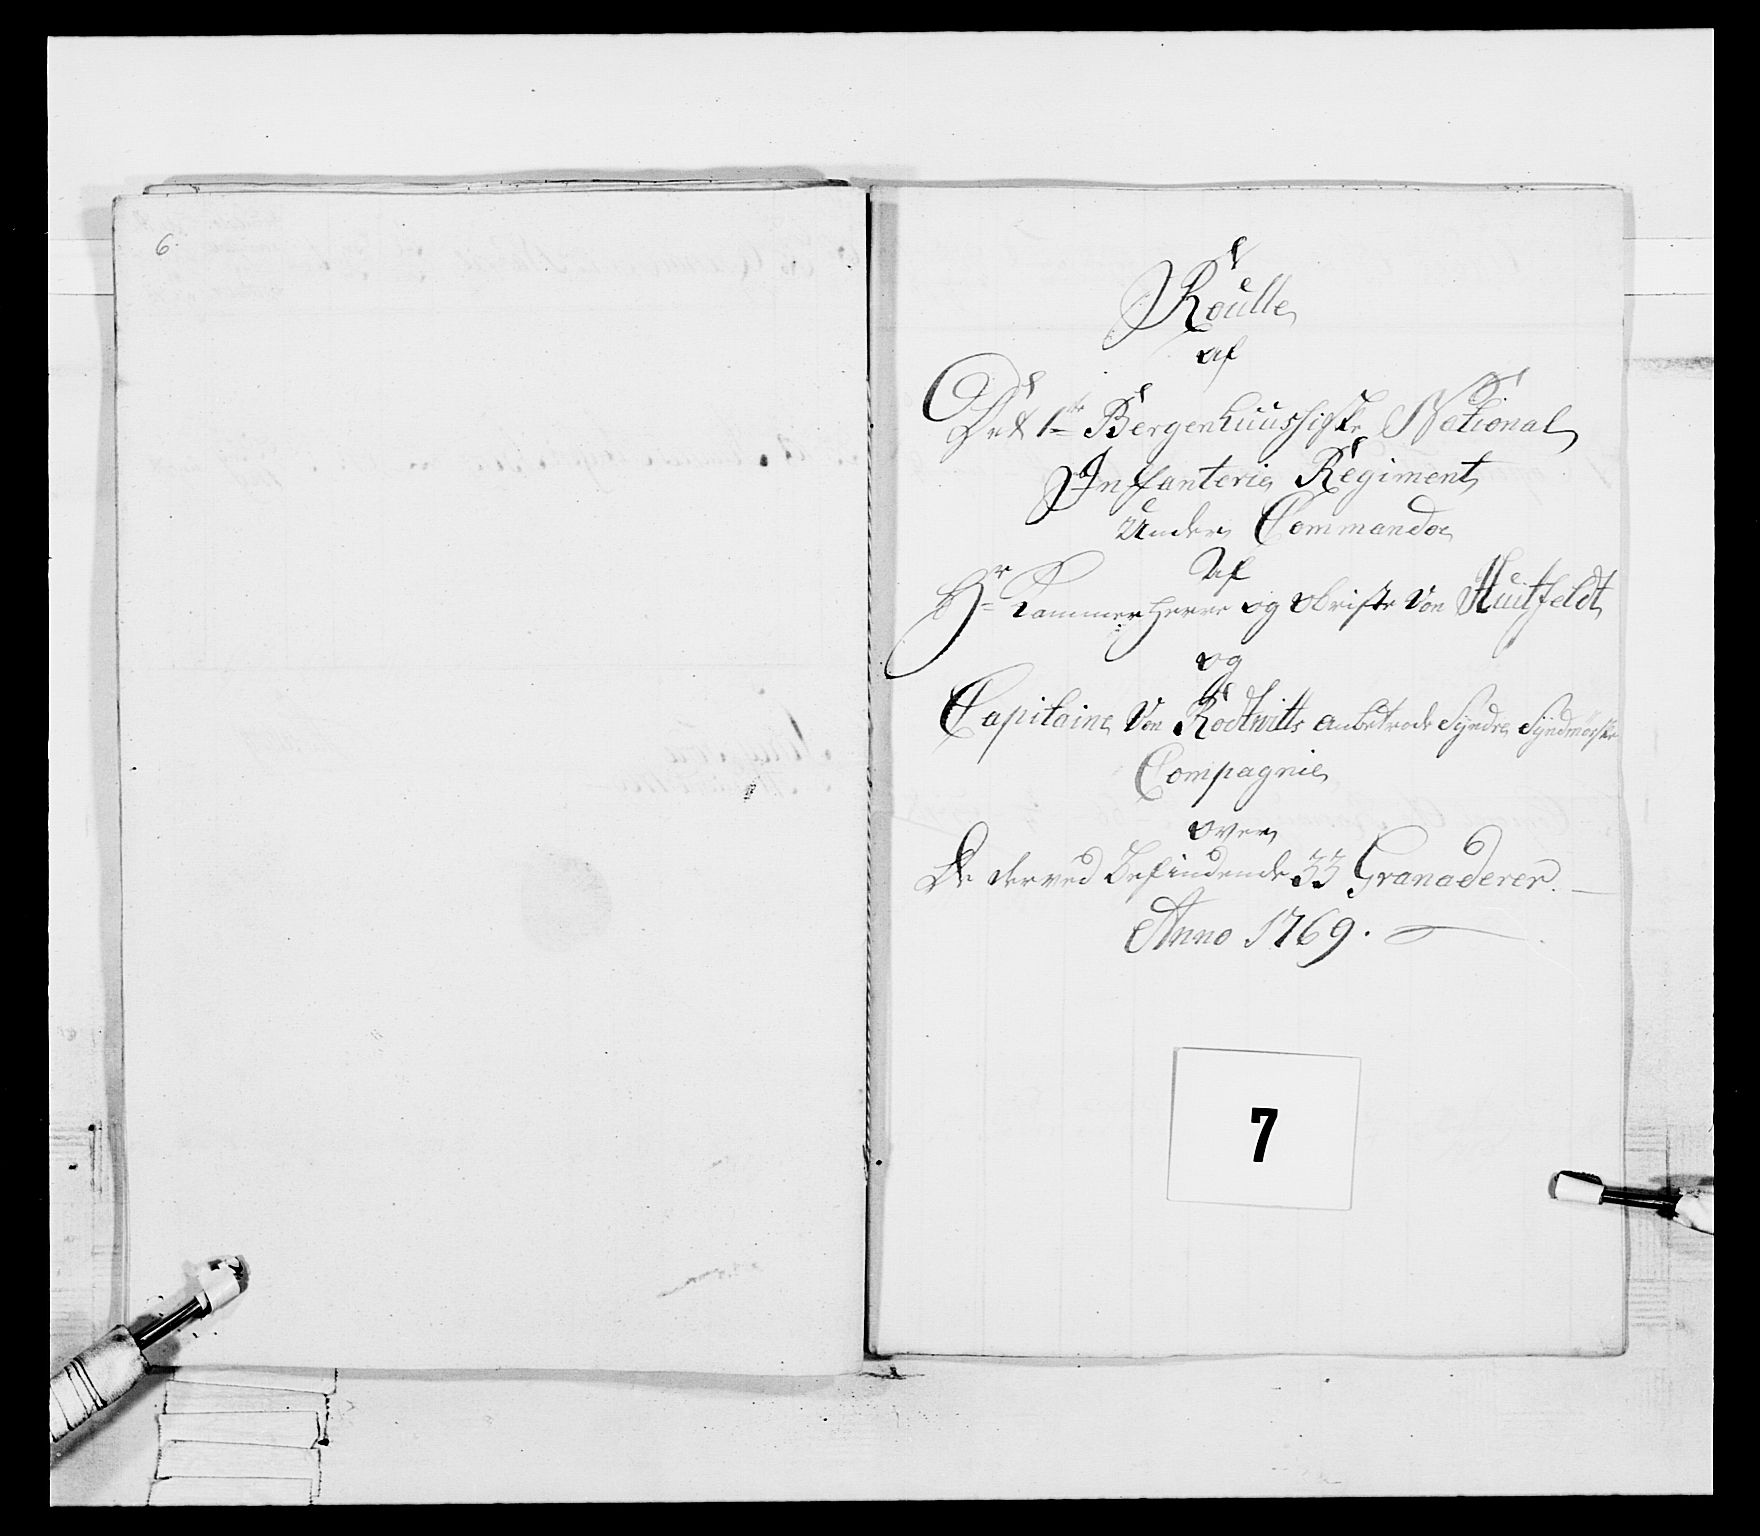 6.
Roulle
af
Det 1te Bergenhuusiske National
Infanterie Regiment
Under Commando
Af
Hr Kammerherre og Obriste Von Huitfeldt
og
Capitaine Von Rodtwitts anbetroede Syndre Syndmørske
Compagnie
over
De derved Befindende 33 Granaderer.
Anno 1769.
7